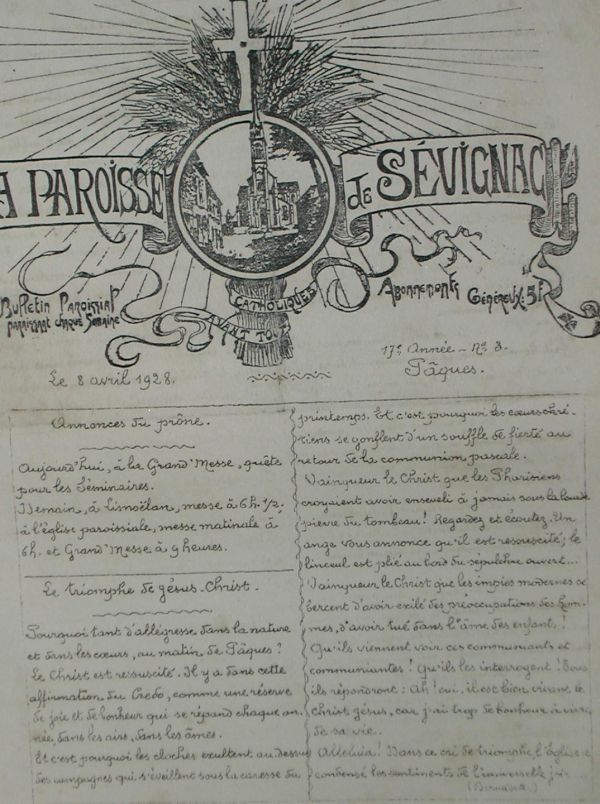 A PAROISSE
de SÉVIGNAC
Bulletin Paroissial
paraissant chaque Semaine
CATHOLIQUES
AVANT TOUT
Abonnements Généreux: 5f
17e Année - No 3.
Le 8 avril 1928.
Pâques.
Annonces du prône.
Aujourd'hui, à la Grand'Messe, quête
pour les Séminaires.
Demain, à Limoëlan, messe à 6h. 1/2;
à l'église paroissiale, messe matinale à
6h. et Grand'Messe à 9 heures.
Le triomphe de Jésus-Christ.
Pourquoi tant d'allégresse dans la nature
et dans les cœurs, au matin de Pâques?
Le Christ est ressuscité. Il y a dans cette
affirmation du Credo, comme une réserve
de joie et de bonheur qui se répand chaque an
née, dans les airs, dans les âmes.
Et c'est pourquoi les cloches exultent au dessus
des campagnes qui s'éveillent sous la caresse du
printemps. Et c'est pourquoi les cœurs chré-
tiens se gonflent d'un souffle de fierté au
retour de la communion pascale.
Vainqueur le Christ que les Pharisiens
croyaient avoir enseveli à jamais sous la lourde
pierre du tombeau! Regardez et écoutez. Un
ange vous annonce qu'il est ressuscité; le
linceul est plié au bord du sépulcre ouvert...
Vainqueur le Christ que les impies modernes se
bercent d'avoir exilé des préoccupations des hom-
mes, d'avoir tué dans l'âme des enfants!
Qu'ils viennent voir ces communiants et
communiantes! Qu'ils les interrogent! Tous
ils répondront: Ah! oui, il est bien vivant le
Christ Jésus, car j'ai trop de bonheur à vivre
de sa vie.
Alleluia! Dans ce cri de triomphe l'église a
condensé les sentiments de l'universelle joie